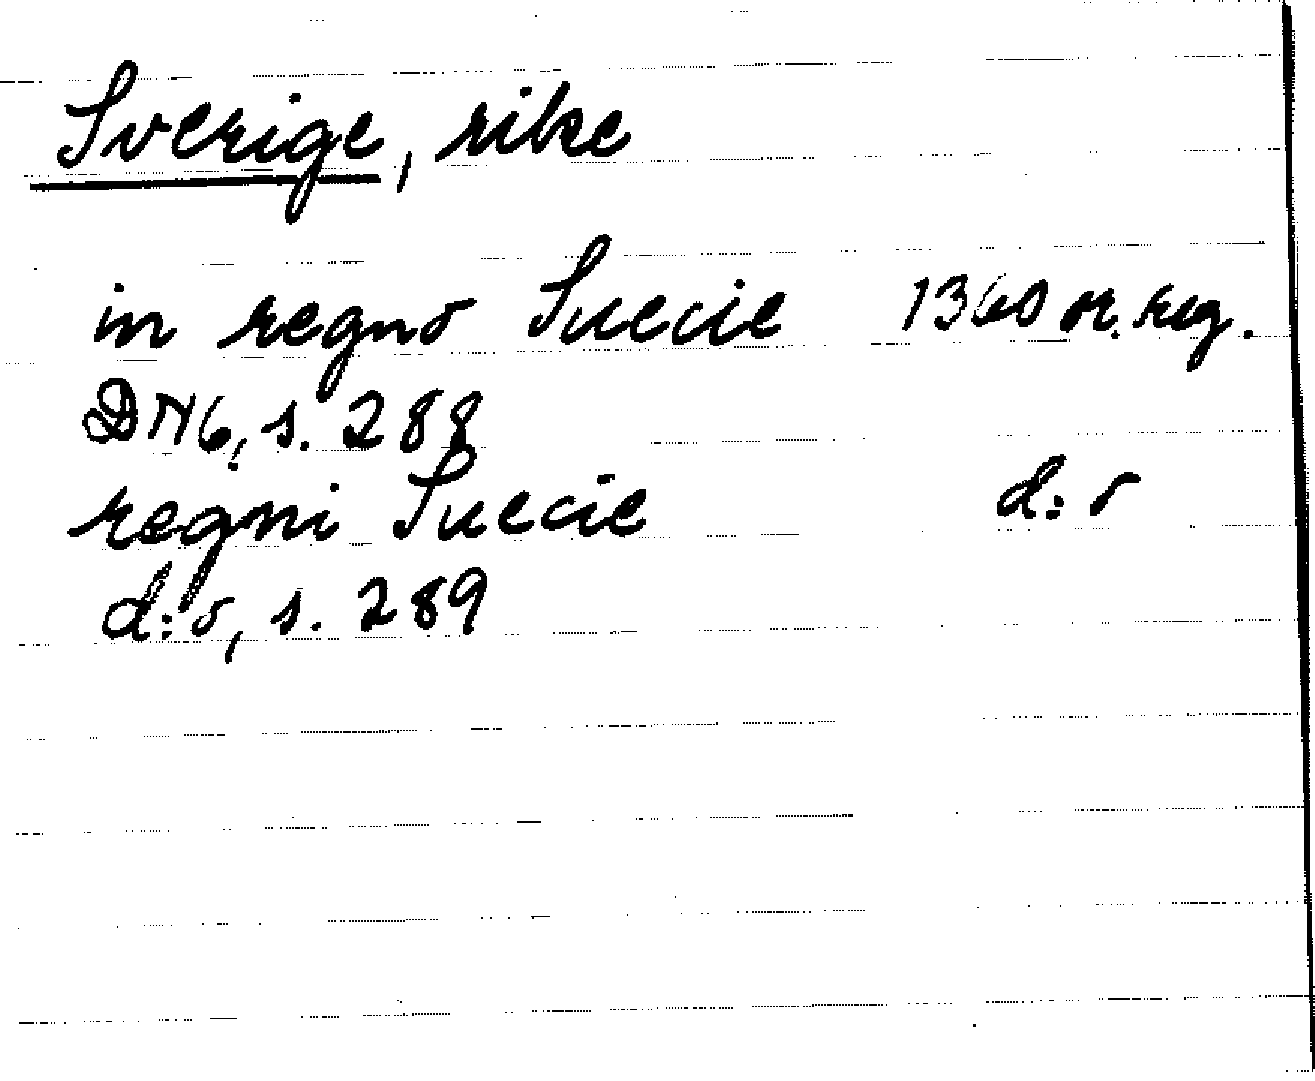 Sverige, rike
in regno Suecie 1360 or. reg.
DN6, s. 288
regni Suecie d:o
d:o, s. 289